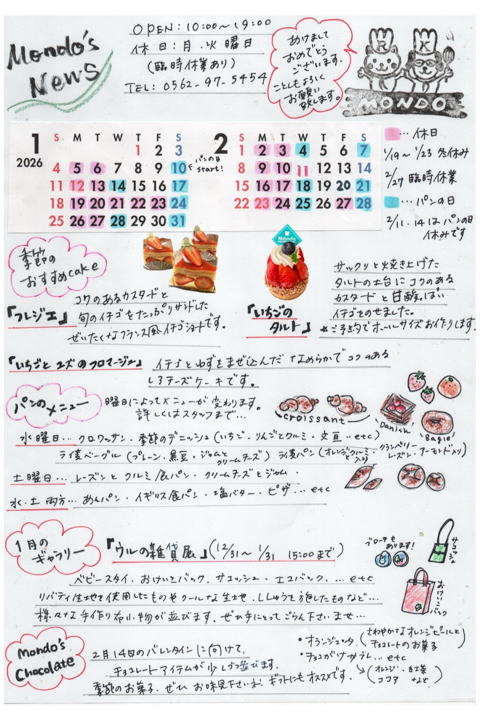 Mondo's News
OPEN: 10:00~19:00
休日: 月.火曜日
(臨時休業あり)
TEL: 0562-97-5454
あけまして
おめでとう
ございます.
ことしもよろしく
お願い
致します。
MONDO
1 2026
S M T W T F S
1 2 3
4 5 6 7 8 9 10
11 12 13 14 15 16 17
18 19 20 21 22 23 24
25 26 27 28 29 30 31
パンの日
start!
2
S M T W T F S
1 2 3 4 5 6 7
8 9 10 11 12 13 14
15 16 17 18 19 20 21
22 23 24 25 26 27 28
…休日
1/19~1/23 冬休み
2/27 臨時休業
…パンの日
2/11.14はパンの日
休みです
季節の
おすすめcake
『フレジエ』
コクのあるカスタードと
旬のイチゴをたっぷりサンドした
ぜいたくなフランス風イチゴショートです。
Mondo
『いちごの
タルト』
サックリと焼き上げた
タルトの土台にコクのある
カスタードと甘酸っぱい
イチゴをのせました。
*ご予約でホールサイズお作りします
『いちごとユズのフロマージュ』
イチゴとゆずをまぜ込んだなめらかでコクのある
レアチーズケーキです。
パンのメニュー
曜日によってメニューが変わります。
詳しくはスタッフまで…
croissant
Danish
Bagle
水曜日… クロワッサン・季節のデニッシュ(いちご・りんごとクルミ・大豆..etc)
ライ麦ベーグル(プレーン・黒豆・ジャムとクリームチーズ)
ライ麦パン(オレンジとクルミ・クランベリー・レーズン・アーモンド入り)
土曜日… レーズンとクルミ食パン・クリームチーズとジャム・
水・土 両方… あんパン・イギリス食パン・塩バター・ピザ…etc
1月の
ギャラリー
『ウルの雑貨展』(12/31~1/31 15:00まで)
ブローチも
あります!
サコッシュ
おけいこバック
ベビースタイ・おけいこバック・サコッシュ・エコバック…etc
リバティ生地を使用したものやクールな生地、ししゅうを施したものなど…
様々な手作り布小物が並びます。ぜひ手にとってごらん下さいませ…
Mondo's
Chocolate
2月14日のバレンタインに向けて、
チョコレートアイテムが少しずつ並びます。
季節のお菓子、ぜひお味見下さいね! ギフトにもオススメです。
・オランジェット(さわやかなオレンジピールと
チョコレートのお菓子
・チョコがけサブレ…etc
(オレンジ・紅茶
ココアなど)